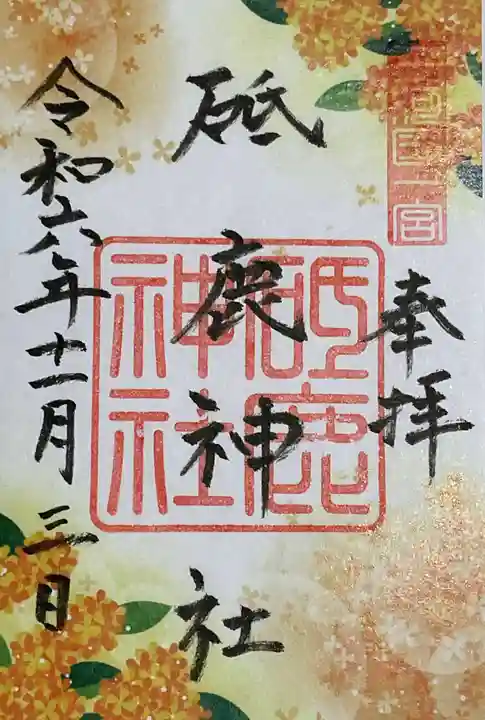 三河國一宮
奉拝
砥鹿神社
砥鹿神社
令和六年十一月三日